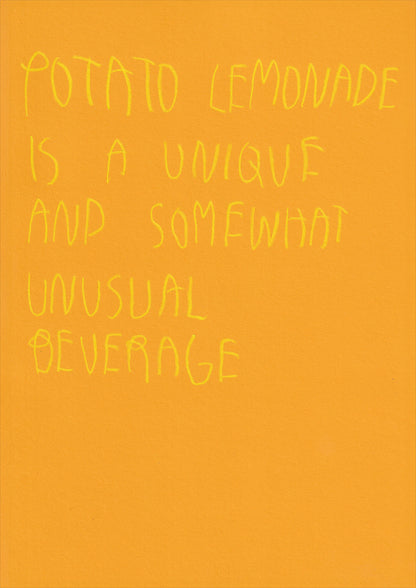 POTATO LEMONADE
IS A UNIQUE
AND SOMEWHAT
UNUSUAL
BEVERAGE